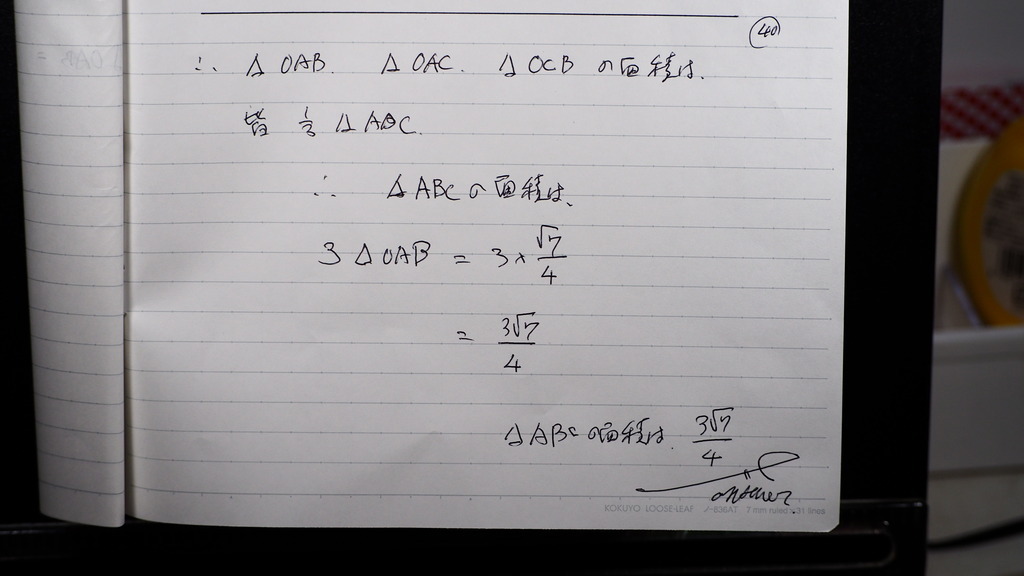 40
∴ △OAB. △OAC. △OCBの面積は、
皆 1/3 △ABC.
∴ △ABCの面積は、
3△OAB = 3×√7/4
= 3√7/4
△ABCの面積は. 3√7/4
answer
KOKUYO LOOSE-LEAF ノ-836AT 7 mm ruled×31 lines